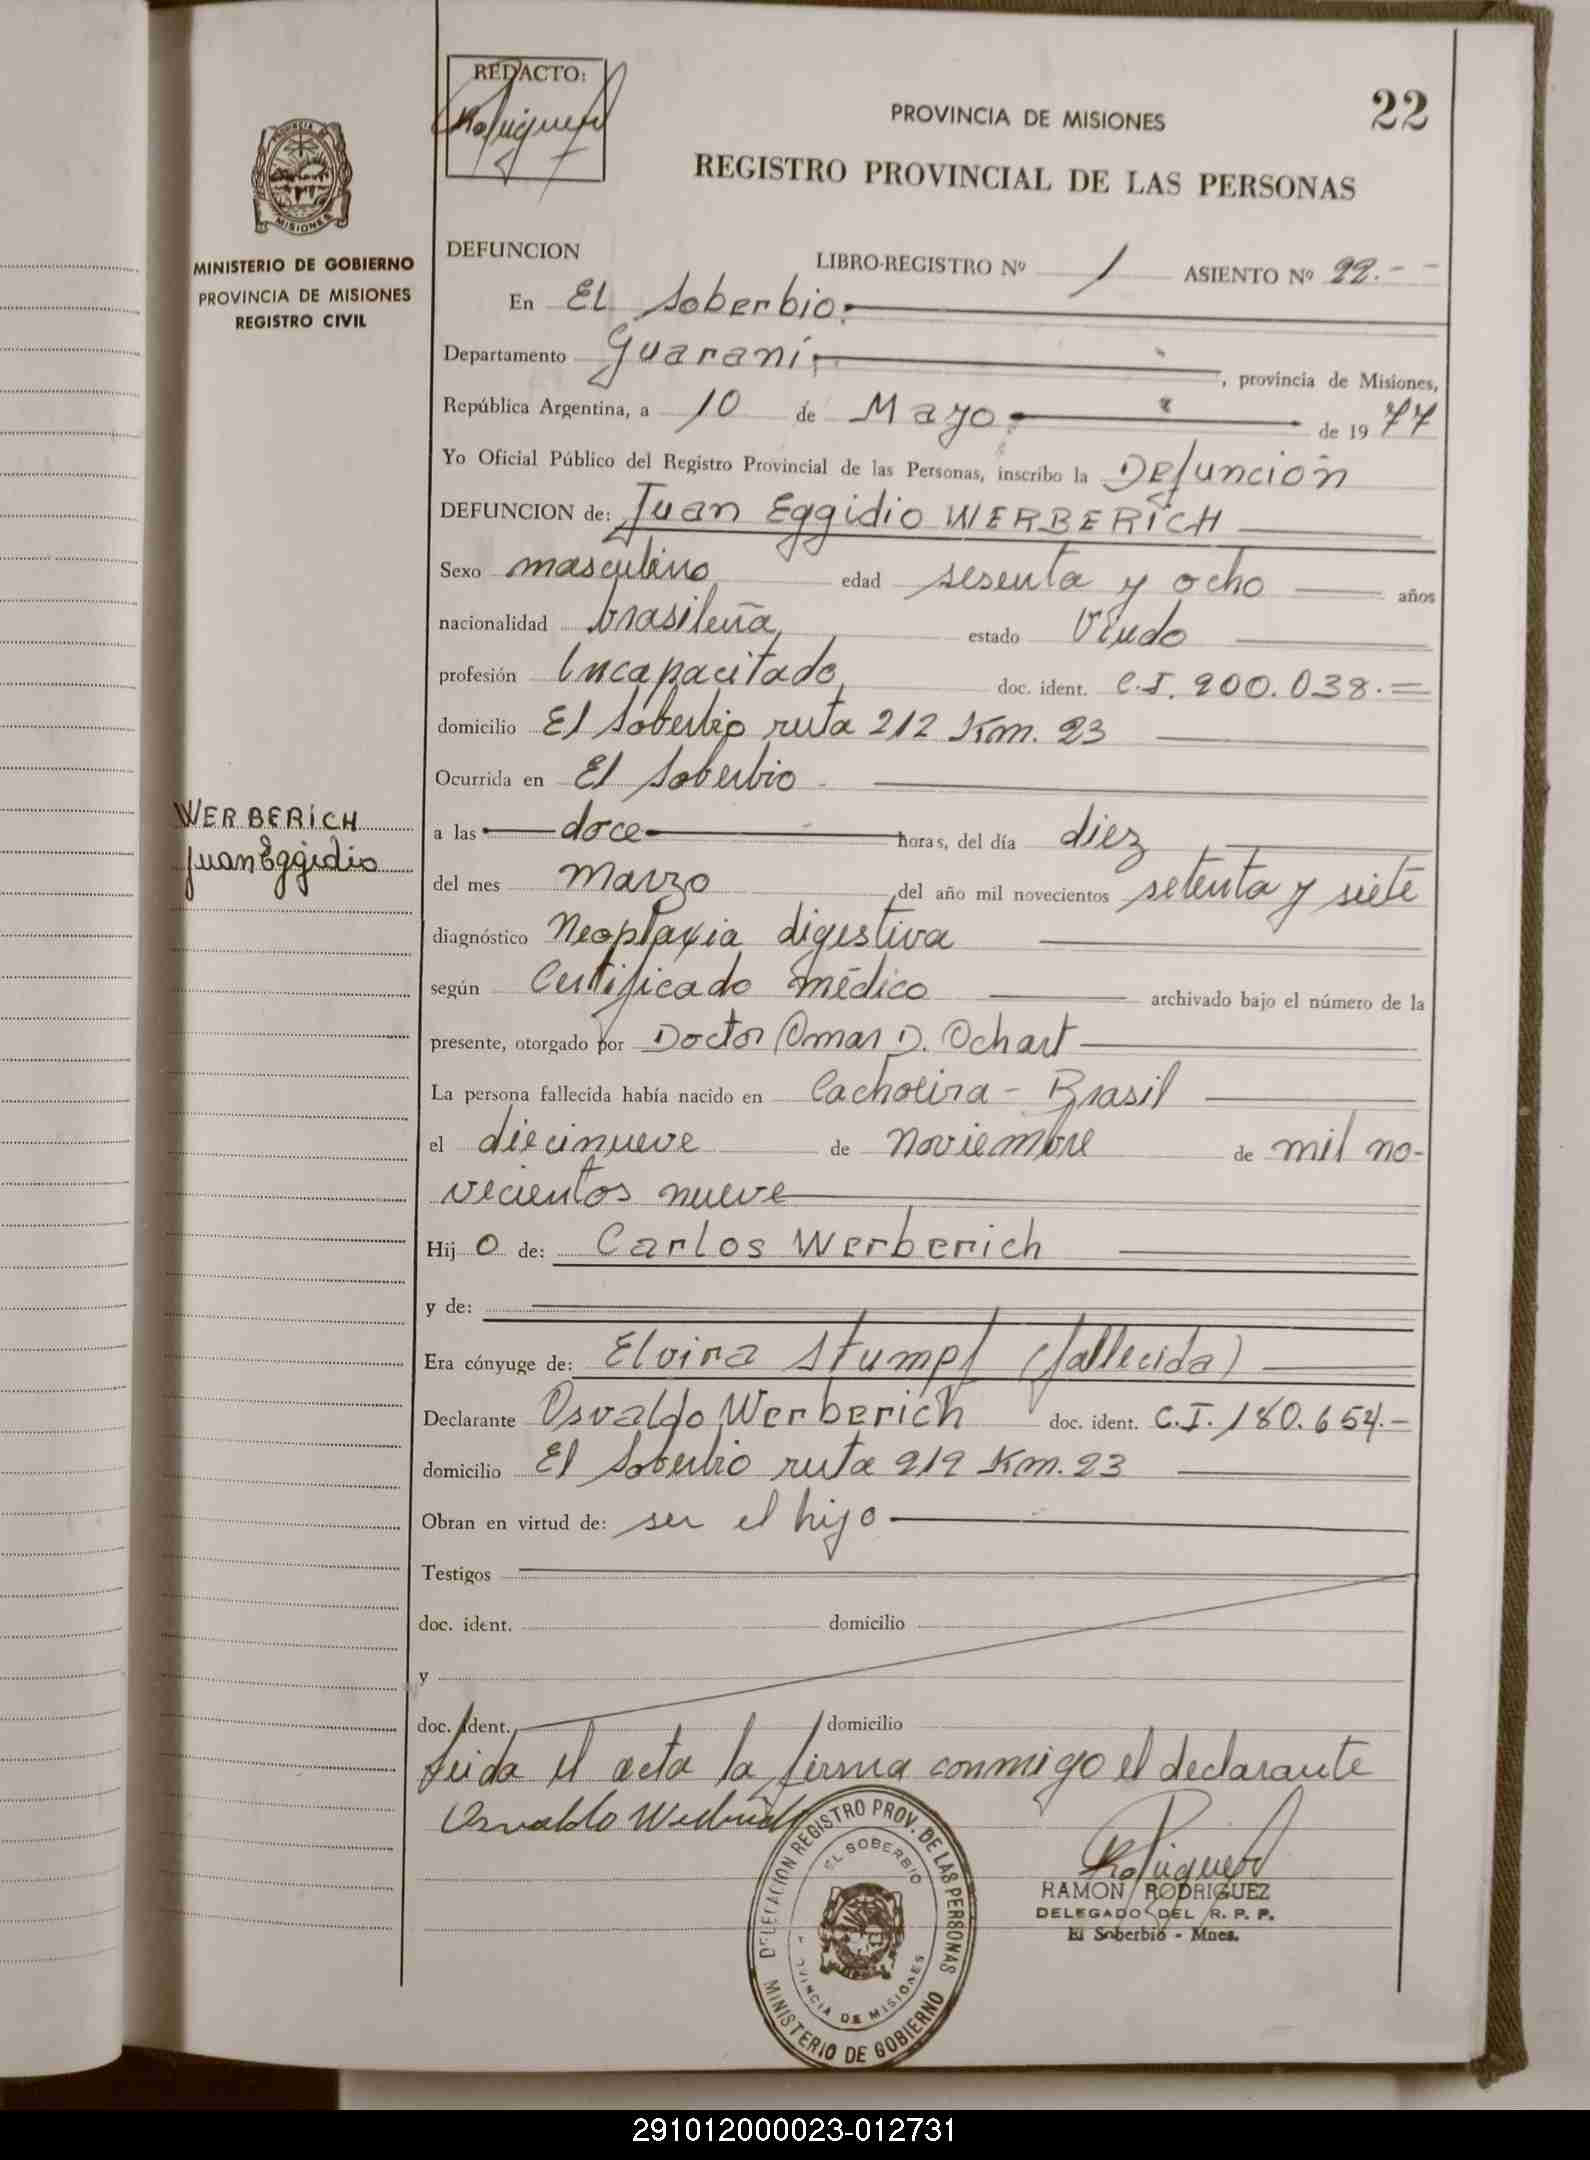 REDACTO:
PROVINCIA DE MISIONES
22
REGISTRO PROVINCIAL DE LAS PERSONAS
MISIONES
MINISTERIO DE GOBIERNO
PROVINCIA DE MISIONES
REGISTRO CIVIL
DEFUNCION LIBRO-REGISTRO Nº 1 ASIENTO Nº 22.--
En El Soberbio.
Departamento Guaraní, provincia de Misiones,
República Argentina, a 10 de Mayo de 1977
Yo Oficial Público del Registro Provincial de las Personas, inscribo la Defunción
DEFUNCION de: Juan Eggidio WERBERICH
Sexo masculino edad sesenta y ocho años
nacionalidad brasileña estado Viudo
profesión Incapacitado doc. ident. C.I. 200.038.=
domicilio El Soberbio ruta 212 Km. 23
Ocurrida en El Soberbio
a las doce horas, del día diez
del mes marzo del año mil novecientos setenta y siete
WERBERICH
Juan Eggidio
diagnóstico Neoplaxia digestiva
según Certificado médico archivado bajo el número de la
presente, otorgado por Doctor Omar D. Ochart
La persona fallecida había nacido en Cacholira - Brasil
el diecinueve de noviembre de mil no-
vecientos nueve
Hij o de: Carlos Werberich
y de:
Era cónyuge de: Elvira Stumpf (fallecida)
Declarante Osvaldo Werberich doc. ident. C.I. 180.654.-
domicilio El Soberbio ruta 212 Km. 23
Obran en virtud de: ser el hijo
Testigos
doc. ident. domicilio
y
doc. ident. domicilio
Leida el acta la firma conmigo el declarante
Osvaldo Werberich
DELEGACION REGISTRO PROV. DE LAS PERSONAS
EL SOBERBIO
PROVINCIA DE MISIONES
MINISTERIO DE GOBIERNO
RAMON RODRIGUEZ
DELEGADO DEL R. P. P.
El Soberbio - Mnes.
291012000023-012731